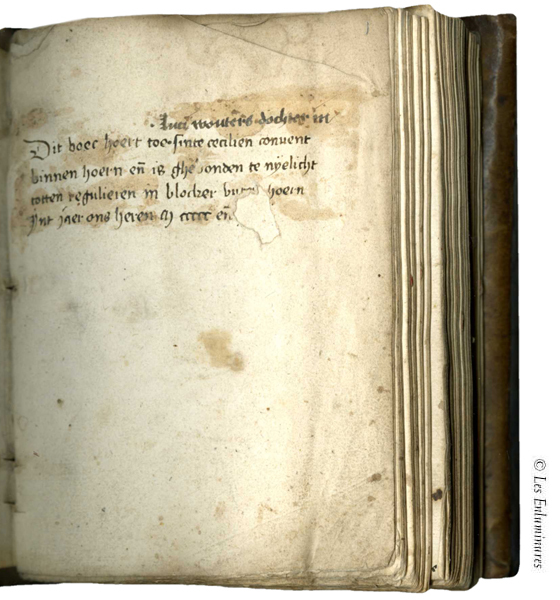 Luci wouters dochter in
Dit boec hoert toe sinte cecilien convent
binnen hoern eñ is ghe onden te nyelicht
totten regulieren in blocker buten hoern
Int jaer ons heren M ccccc eñ
© Les Enluminures